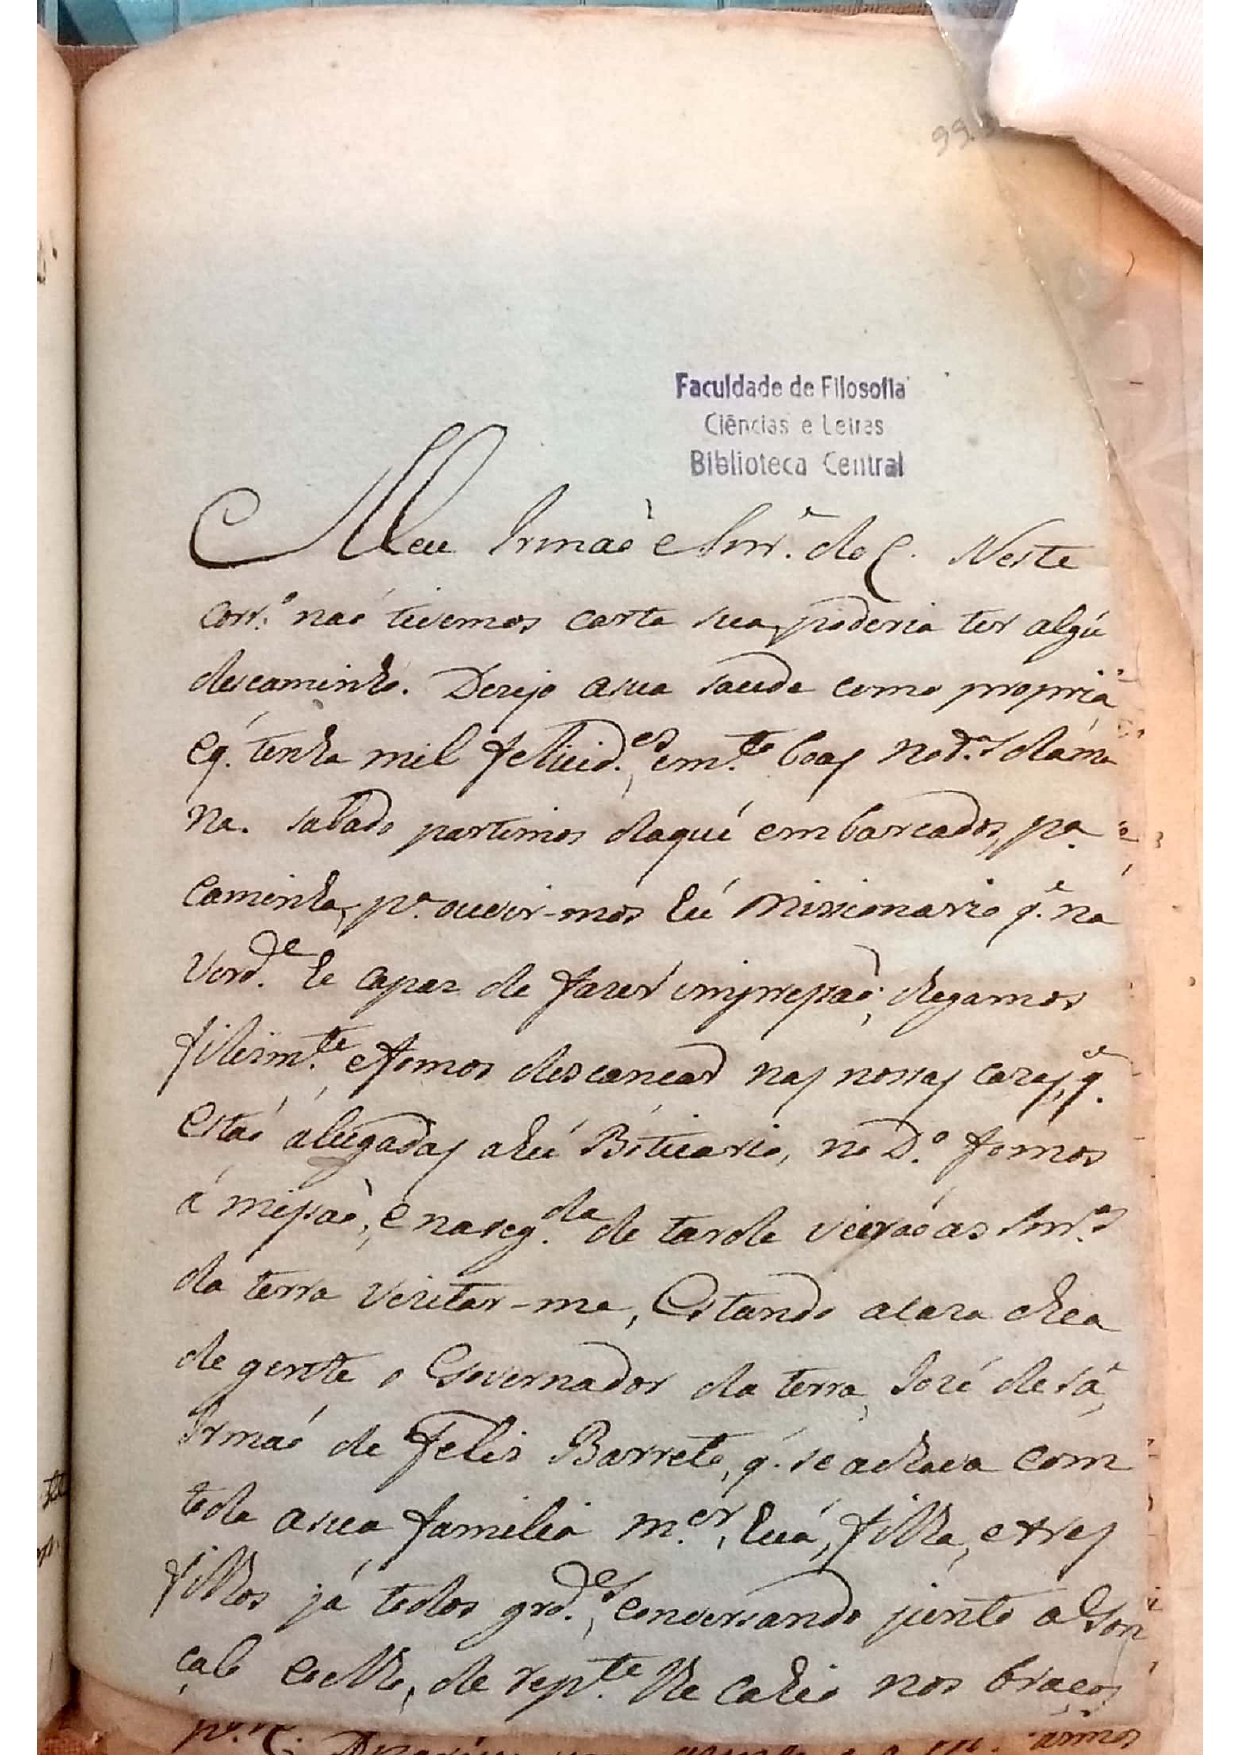 99
Faculdade de Filosofia
Ciências e Letras
Biblioteca Central
Meu Irmaõ e Snr.ͬ do C. Neste
corr.º naõ tivemos carta sua, poderia ter algũ
descaminho. Dezejo a sua saude como propria
e q. tenha mil felicid.es, e m.to boas not.as da m.a
na. sabado partimos daqui embarcados, p.a
Caminha, p.a ouvir-mos hũ Missionario q. na
verd.e he capaz de fazer impressaõ; chegamos
filism.te e fomos descancar nas nossas cazas, q.
estaõ alugadas a hũ Boticario, no D.º fomos
á missaõ, e na seg.da de tarde vieraõ as Snr.as
da terra vizitar-me, Estando a caza chea
de gente o Governador da terra, Jozé de Sá,
Irmaõ de Felis Barreto, q. se achava com
toda a sua familia m.er, huã, filha, e tres
filhos já todos grd.es, conversando junto a Gon
calo Coelho, de rep.te lhe cahio nos braços